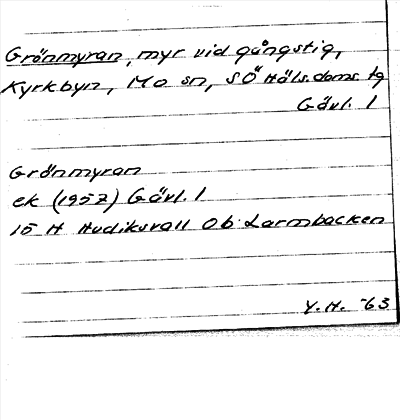 Grönmyran, myr vid gångstig,
Kyrkbyn, Mo sn, SÖ Häls. doms tg
Gävl. l
Grönmyran
ek (1957) Gävl. l
15 H Hudiksvall Ob Larmbacken
Y. H. -63